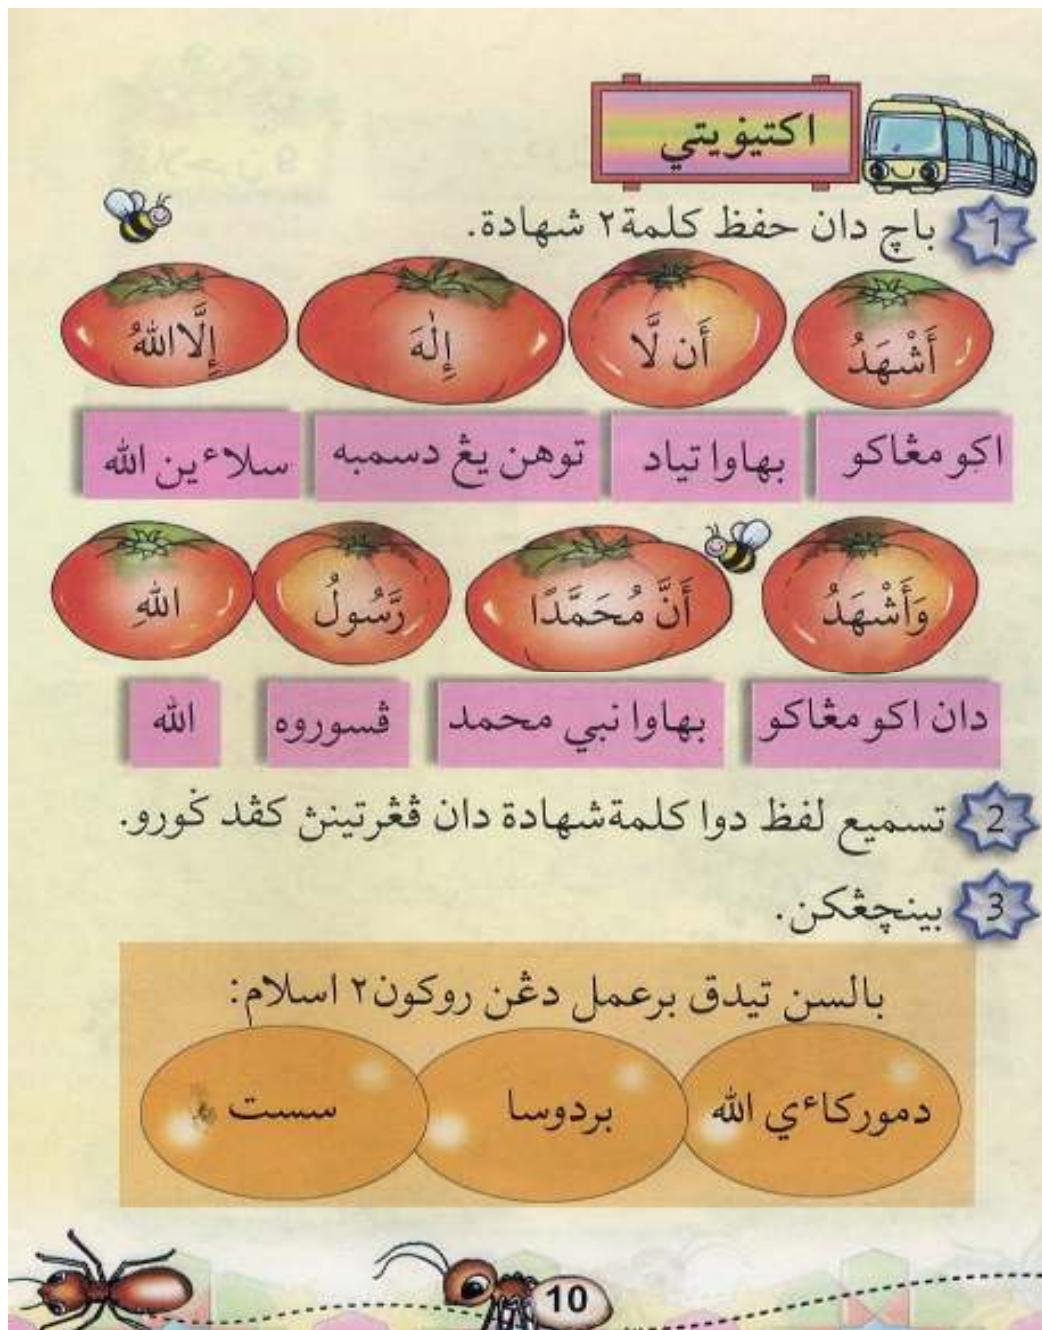 اکتيۏيتي
1 باچ دان حفظ کلمة٢ شهادة.
أَشْهَدُ أَن لَّا إِلٰهَ إِلَّا اللهُ
اکو مڠاکو بهاوا تياد توهن يڠ دسمبه سلاءين الله
وَأَشْهَدُ أَنَّ مُحَمَّدًا رَّسُولُ اللهِ
دان اکو مڠاکو بهاوا نبي محمد ڤسوروه الله
2 تسميع لفظ دوا کلمة شهادة دان ڤڠرتينڽ کڤد ݢورو.
3 بينچڠکن.
بالسن تيدق برعمل دڠن روکون٢ اسلام:
دمورکاءي الله بردوسا سست
10